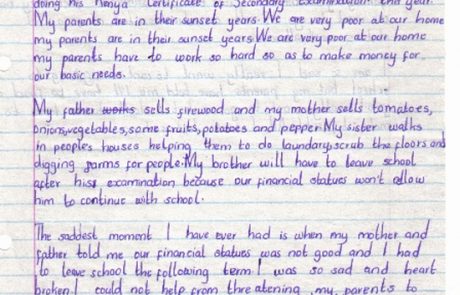 doing his Kenya Certificate of Secondary Examination this year.
My parents are in their sunset years. We are very poor at our home
my parents are in their sunset years. We are very poor at our home
my parents have to work so hard so as to make money for
our basic needs.
My father works sells firewood and my mother sells tomatoes,
onions, vegetables, some fruits, potatoes and pepper. My sister walks
in people's houses helping them to do laundary, scrub the floors and
digging farms for people. My brother will have to leave school
after his examination because our financial statues won't allow
him to continue with school.
The saddest moment I have ever had is when my mother and
father told me our financial statues was not good and I had
to leave school the following term. I was so sad and heart
broken. I could not help from threatening my parents to